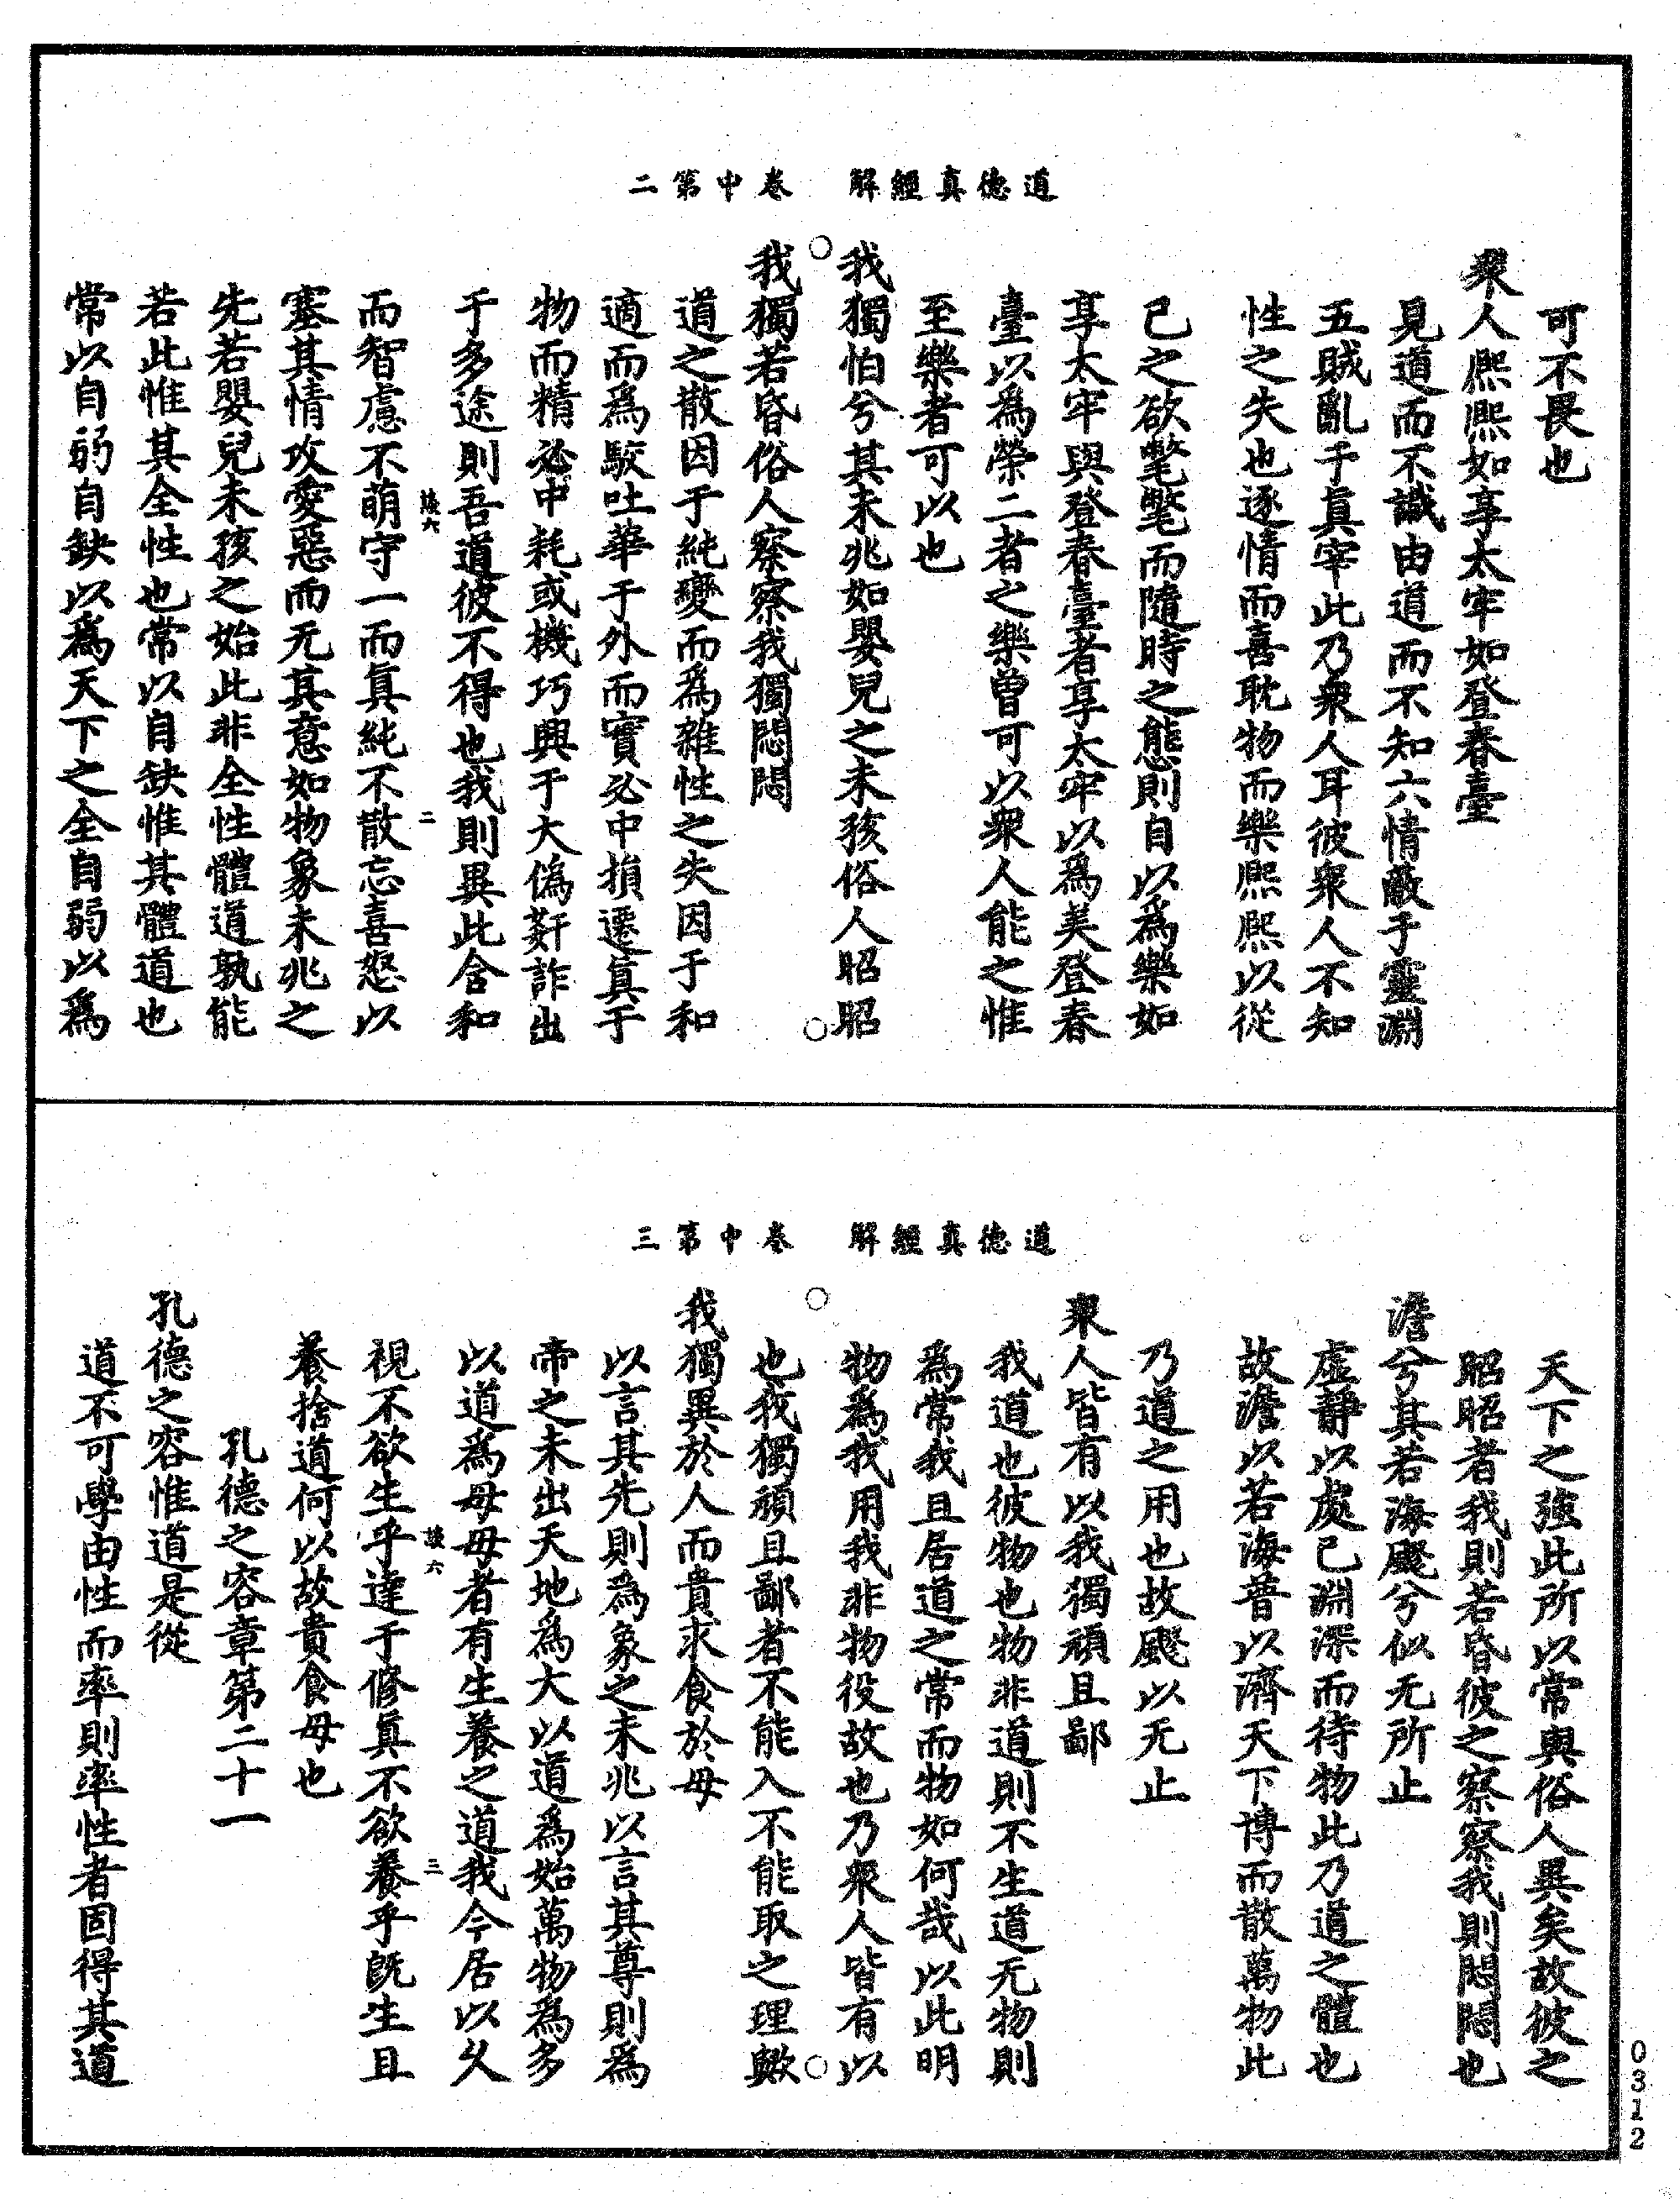 道德真經解　卷中第二
可不畏也
衆人熈熈如享太牢如登春臺
見道而不識由道而不知六情敵于靈淵
五賊亂于真宰此乃衆人耳彼衆人不知
性之失也逐情而喜耽物而樂熈熈以從
已之欲氅氅而隨時之態則自以爲樂如
享太牢與登春臺者享太牢以爲美登春
臺以爲榮二者之樂曽可以衆人能之惟
至樂者可以也
我獨怕兮其未兆如嬰兒之未孩俗人昭昭
我獨若昏俗人察察我獨悶悶
道之散因于純變而爲雜性之失因于和
適而爲駮吐華于外而實必中損遷真于
物而精必中耗或機巧興于大偽姧詐出
于多途則吾道彼不得也我則異此含和
談六　二
而智慮不萌守一而真純不散忘喜怒以
塞其情攻愛惡而无其意如物象未兆之
先若嬰兒未孩之始此非全性體道孰能
若此惟其全性也常以自缺惟其體道也
常以自弱自缺以爲天下之全自弱以爲
道德真經解　卷中第三
天下之強此所以常與俗人異矣故彼之
昭昭者我則若昏彼之察察我則悶悶也
澹兮其若海飂兮似无所止
虛靜以處已淵深而待物此乃道之體也
故澹以若海普以濟天下博而散萬物此
乃道之用也故飂以无止
衆人皆有以我獨頑且鄙
我道也彼物也物非道則不生道无物則
爲常我且居道之常而物如何哉以此明
物爲我用我非物役故也乃衆人皆有以
也我獨頑且鄙者不能入不能取之理歟
我獨異於人而貴求食於母
以言其先則爲象之未兆以言其尊則爲
帝之未出天地爲大以道爲始萬物爲多
以道爲母母者有生養之道我今居以久
談六　三
視不欲生乎達于修真不欲養乎既生且
養捨道何以故貴食母也
孔德之容章第二十一
孔德之容惟道是從
道不可學由性而率則率性者固得其道
0312